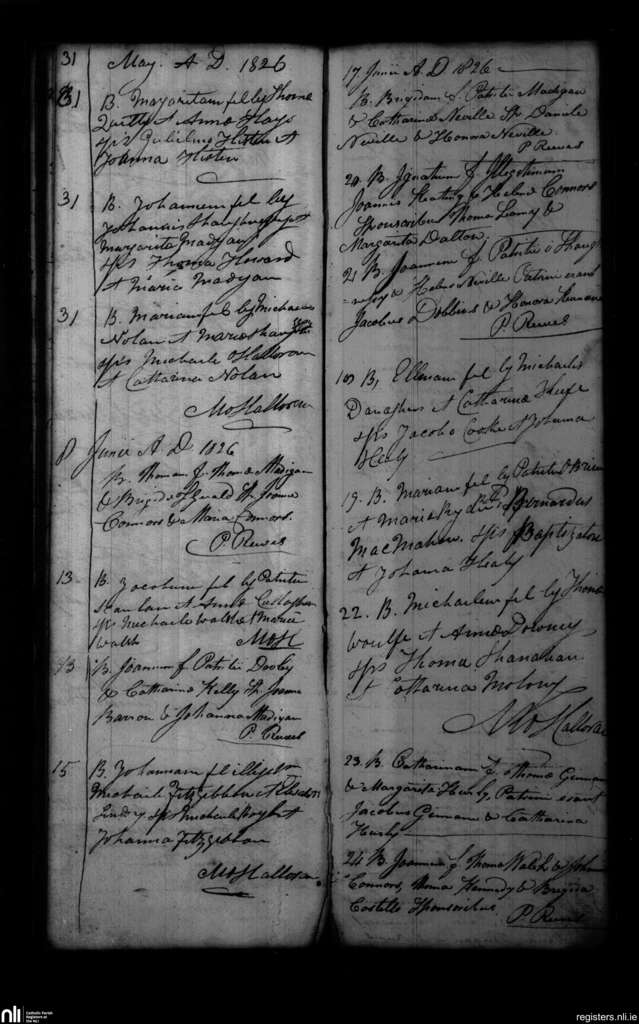 31 May. A D. 1826
31 B. Margaritam fil by Thoma
et Anna Hays
sp's Gulielmo Histen et
Joanna Histen
31 B. Johannem fil by
Johannis Shaughnessy et
Margarita Madigan
sp's Thoma Howard
et Maria Madigan
31 B. Mariam fil by Michaele
Nolan et Maria
sp's Michaele OHalloran
et Catharina Nolan
M OHalloran
8 Junii A D 1826
B. Thomam f. Thoma Madigan
& Brigida fzGerald Sp. Joanne
Connors & Maria Connors.
P. Reeves
13 B. Jacobum fil by Patritio
Scanlan et Anna
sp's Michaele Walsh & Maria
Walsh M OH
13 B. Joannem f. Patritii Dooly
& Catharina Kelly Sp. Joanne
Barron & Johanna Madigan
P. Reeves
15 B. Johannam fil illegit
Michaele Fitzgibbon et
Lindsy sp's Michaele et
Johanna Fitzgibbon
M OHalloran
17 Junii A. D 1826
B. Brigidam f. Patritii Madigan
& Catharina Neville Sp. Daniele
Neville & Honora Neville.
P Reeves
20. B. Ignatium f. Illegitimum
Joannis Keating & Helena Connors
Sponsoribus Thoma Leamy &
Margarita Dalton.
21 B. Joannem f. Patritii o Shaugh
-nessy & Helena Neville Patrini erant
Jacobus Dobbins & Honora
P. Reeves
19 B, Ellenam fil by Michaelis
Danagher et Catharina
sp's Jacobo Cooke et Johanna
Healy
19. B. Mariam fil by Patritio OBrien
et Maria Ryder Bernardus
MacMahon. sp's Baptizatore
et Johanna Healy
22. B. Michaelem fil by Thoma
Woulfe et Anna Downey
sp's Thoma Shanahan
et Catharina Molony
M OHalloran
23. B Catharinam f. Thoma Ginnane
& Margarita Hurly, Patrini erant
Jacobus Ginnane & Catharina
Hurly
24 B Joannem f Thoma Walsh & Johan
Connors, Thomas Kennedy & Brigida
Costello Sponsoribus
P. Reeves
nli Catholic Parish
Registers at
The NLI
registers.nli.ie